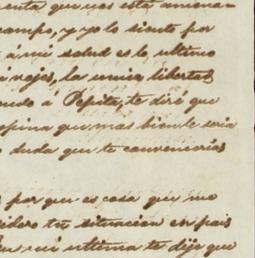 enta que nos está amena-
campo, y yo lo siento por
á mi salud es lo ultimo
ánejos, la unica libertad
á Pepita, te diré que
opina que mas bien le seria
duda que te convencerias
por que es cosa que me
sidero tu situacion en pais
mi ultima te dije que